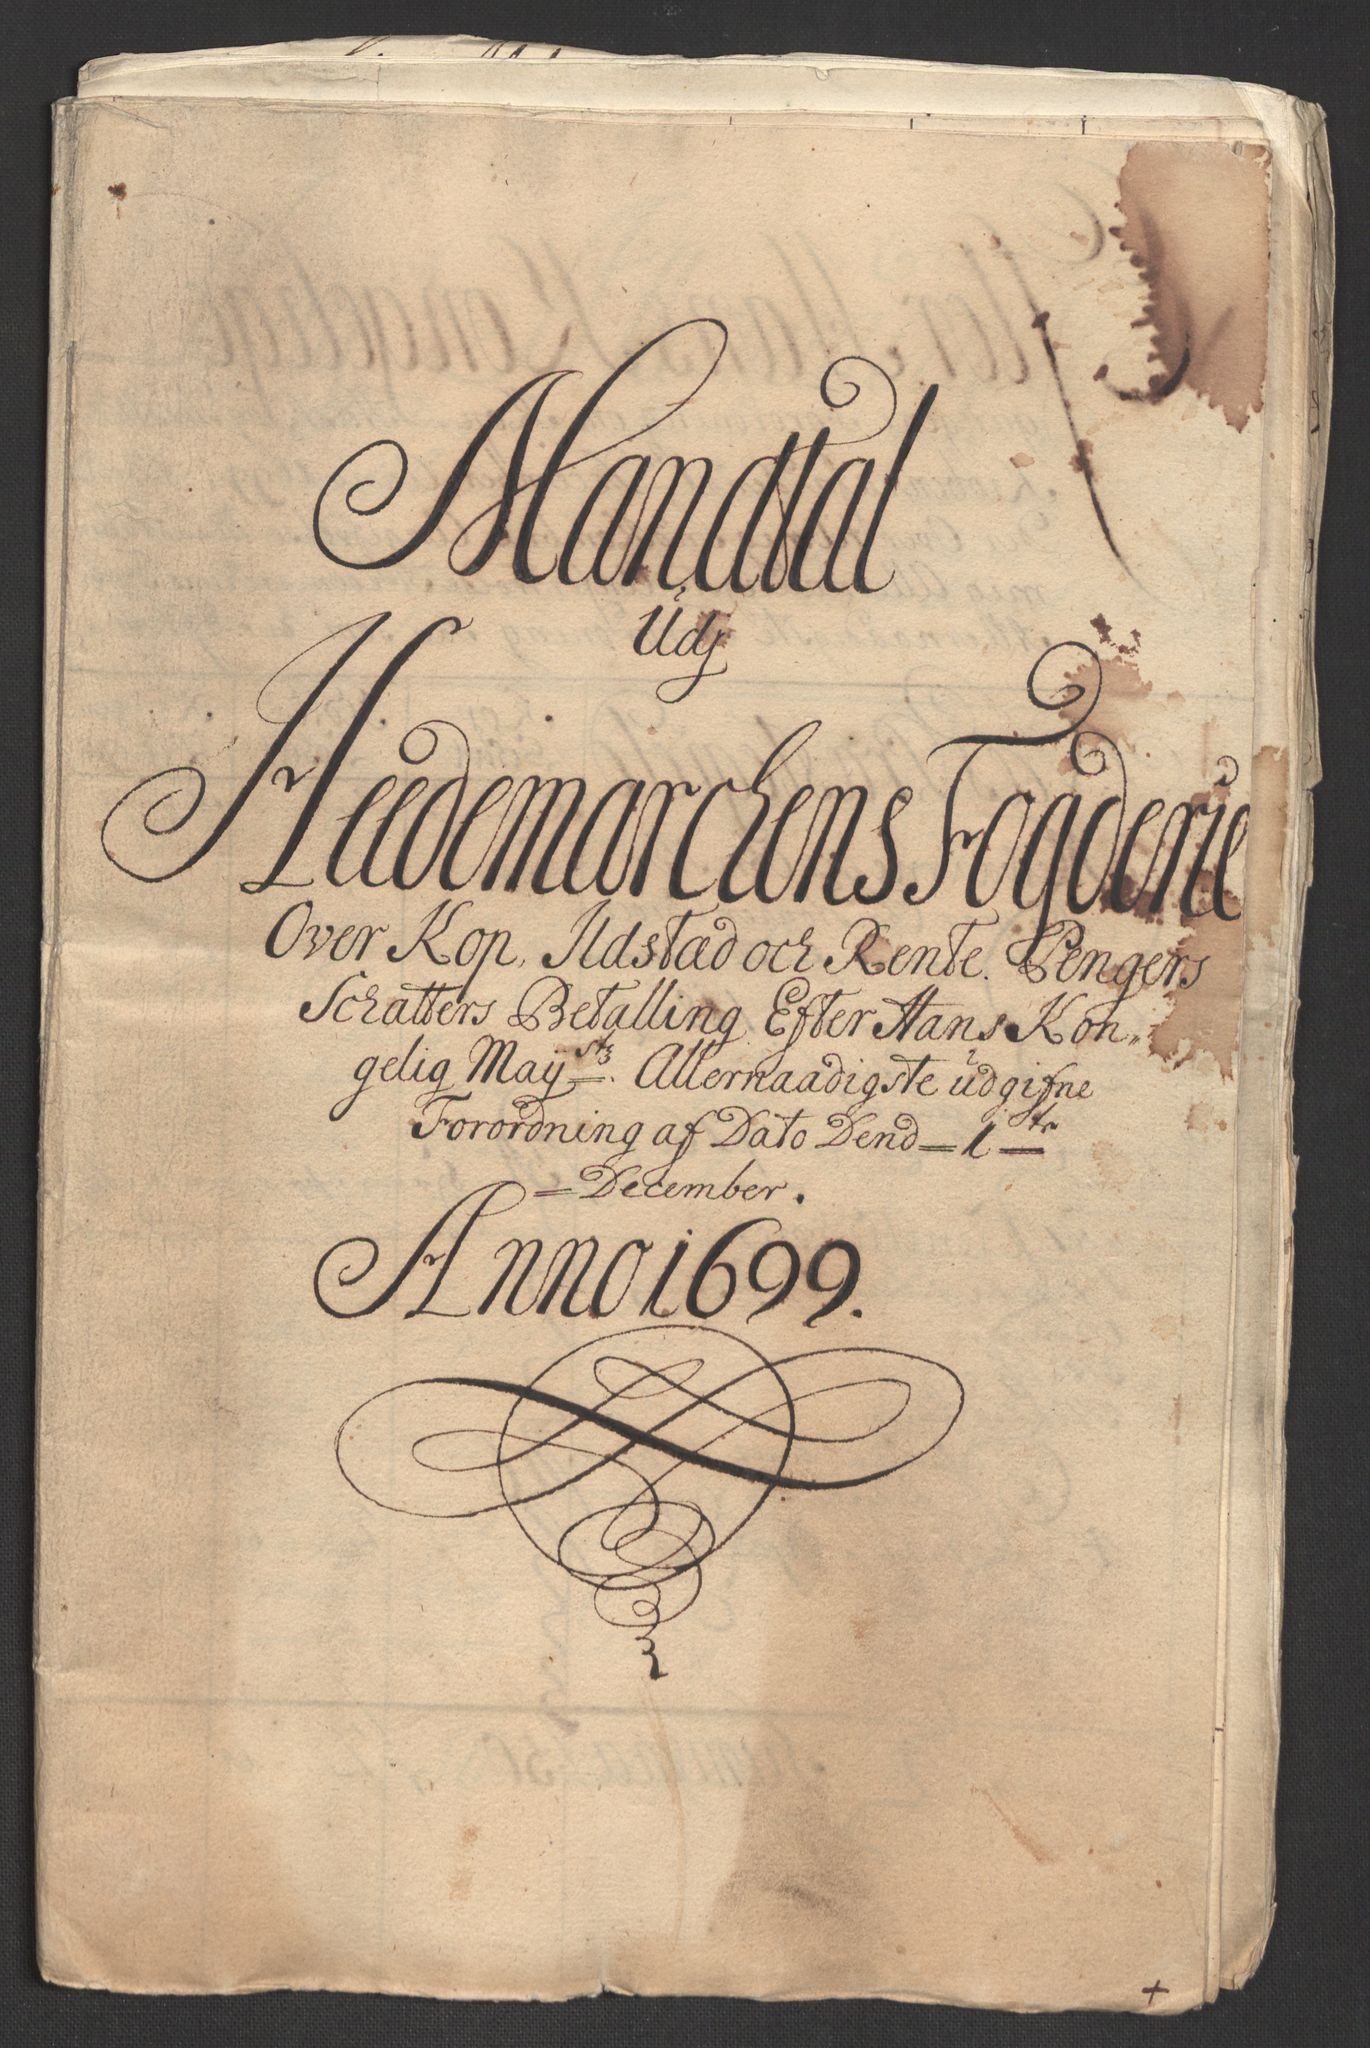 Mandtal
Udj
Heedemarchens Fogderie
Over Kop, Ildstæd och Rente Pengers
Schatters Betalling Efter Hans Kon„
gelig Maÿstz Allernaadigste udgifne
Forordning af Dato Dend 1te
December.
Anno 1699.